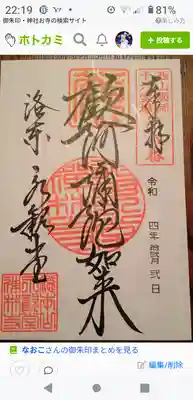 22:19
81%
御朱印・神社お寺の検索サイト
ホトカミ
+ 投稿する
奉拝
令和 四年 拾弐月 弐日
顧阿彌陀如来
洛東 永観堂
なおこさんの御朱印まとめを見る
編集/削除